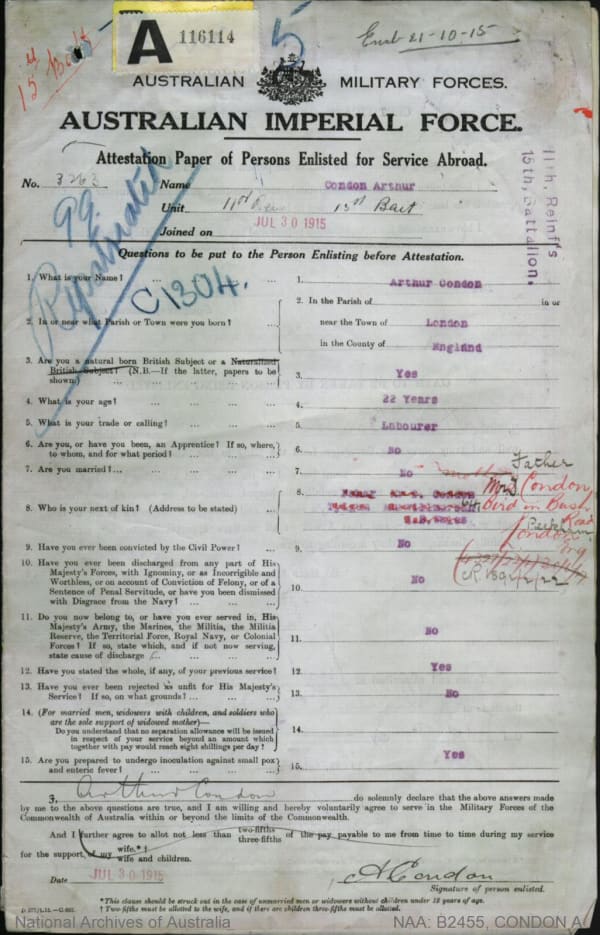 A 116114
5
Enl 21-10-15
15 Batt
AUSTRALIAN MILITARY FORCES.
AUSTRALIAN IMPERIAL FORCE.
Attestation Paper of Persons Enlisted for Service Abroad.
No. 3263 Name Condon Arthur
Unit 11th 15th Batt
JUL 30 1915
Joined on
11th, Reinf's
15th, Battalion.
Questions to be put to the Person Enlisting before Attestation.
C1304.
1. What is your Name? ... ... 1. Arthur Condon
2. In or near what Parish or Town were you born? ... 2. In the Parish of in or
near the Town of London
in the County of England
3. Are you a natural born British Subject or a Naturalised
British Subject? (N.B.—If the latter, papers to be
shown.) 3. Yes
4. What is your age? 4. 22 Years
5. What is your trade or calling? 5. Labourer
6. Are you, or have you been, an Apprentice? If so, where,
to whom, and for what period? 6. No
7. Are you married? 7. No
Father
8. Who is your next of kin? (Address to be stated) 8. Condon
Bird in Bush
Road
Peckham
London
9. Have you ever been convicted by the Civil Power? 9. No
10. Have you ever been discharged from any part of His
Majesty's Forces, with Ignominy, or as Incorrigible and
Worthless, or on account of Conviction of Felony, or of a
Sentence of Penal Servitude, or have you been dismissed
with Disgrace from the Navy? 10. No
11. Do you now belong to, or have you ever served in, His
Majesty's Army, the Marines, the Militia, the Militia
Reserve, the Territorial Force, Royal Navy, or Colonial
Forces? If so, state which, and if not now serving,
state cause of discharge 11. No
12. Have you stated the whole, if any, of your previous service? 12. Yes
13. Have you ever been rejected as unfit for His Majesty's
Service? If so, on what grounds? 13. No
14. (For married men, widowers with children, and soldiers who
are the sole support of widowed mother)—
Do you understand that no separation allowance will be issued
in respect of your service beyond an amount which
together with pay would reach eight shillings per day? 14.
15. Are you prepared to undergo inoculation against small pox
and enteric fever? 15. Yes
I, Arthur Condon do solemnly declare that the above answers made
by me to the above questions are true, and I am willing and hereby voluntarily agree to serve in the Military Forces of the
Commonwealth of Australia within or beyond the limits of the Commonwealth.
And I further agree to allot not less than two-fifths three-fifths of the pay payable to me from time to time during my service
for the support of my wife.*†
wife and children.
Date JUL 30 1915 A Condon
Signature of person enlisted.
*This clause should be struck out in the case of unmarried men or widowers without children under 18 years of age.
† Two-fifths must be allotted to the wife, and if there are children three-fifths must be allotted.
National Archives of Australia NAA: B2455, CONDON A